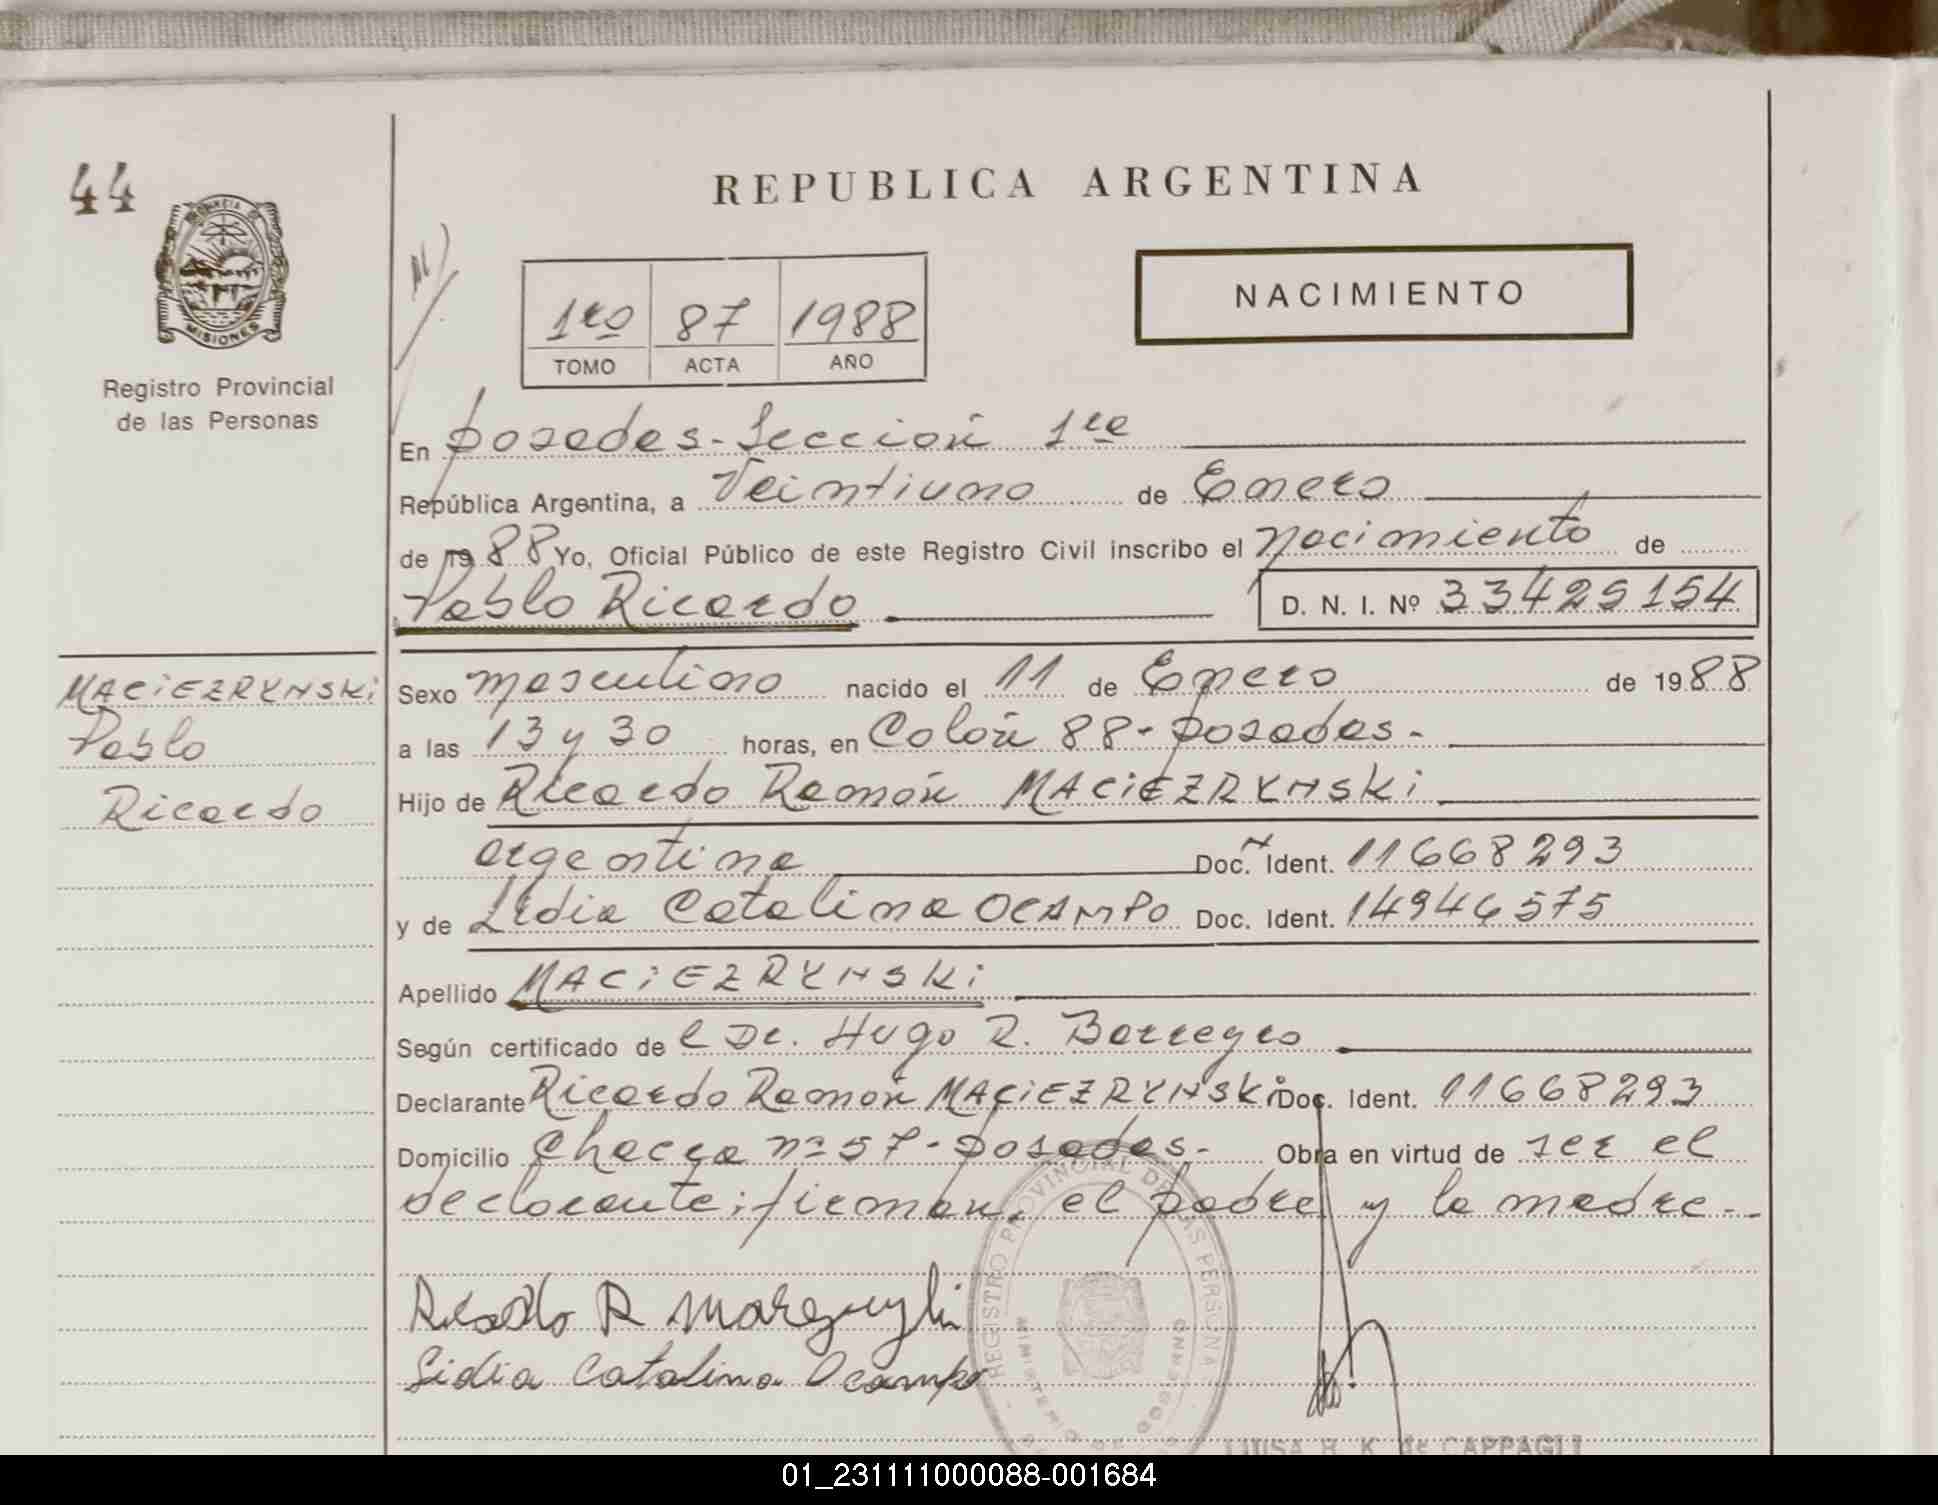 44
REPUBLICA ARGENTINA
PROVINCIA DE MISIONES
Registro Provincial
de las Personas
1ro 87 1988
TOMO ACTA AÑO
NACIMIENTO
En Posadas - Sección 1ra
República Argentina, a Veintiuno de Enero
de 1988 Yo, Oficial Público de este Registro Civil inscribo el nacimiento de
Pablo Ricardo D. N. I. Nº 33425154
MACIEZRYNSKI
Pablo
Ricardo
Sexo masculino nacido el 11 de Enero de 1988
a las 13 y 30 horas, en Colón 88 - Posadas -
Hijo de Ricardo Ramón MACIEZRYNSKI
argentina Doc. Ident. 11668293
y de Lidia Catalina OCAMPO Doc. Ident. 14946575
Apellido MACIEZRYNSKI
Según certificado de l Dr. Hugo R. Barreyro
Declarante Ricardo Ramón MACIEZRYNSKI Doc. Ident. 11668293
Domicilio Chacra nº 57 - Posadas - Obra en virtud de ser el
declarante; firman, el padre y la madre -
Lidia Catalina Ocampo
REGISTRO PROVINCIAL DE LAS PERSONAS
MINISTERIO DE GOBIERNO
LUISA R. K. de CAPPAGLI
01_231111000088-001684